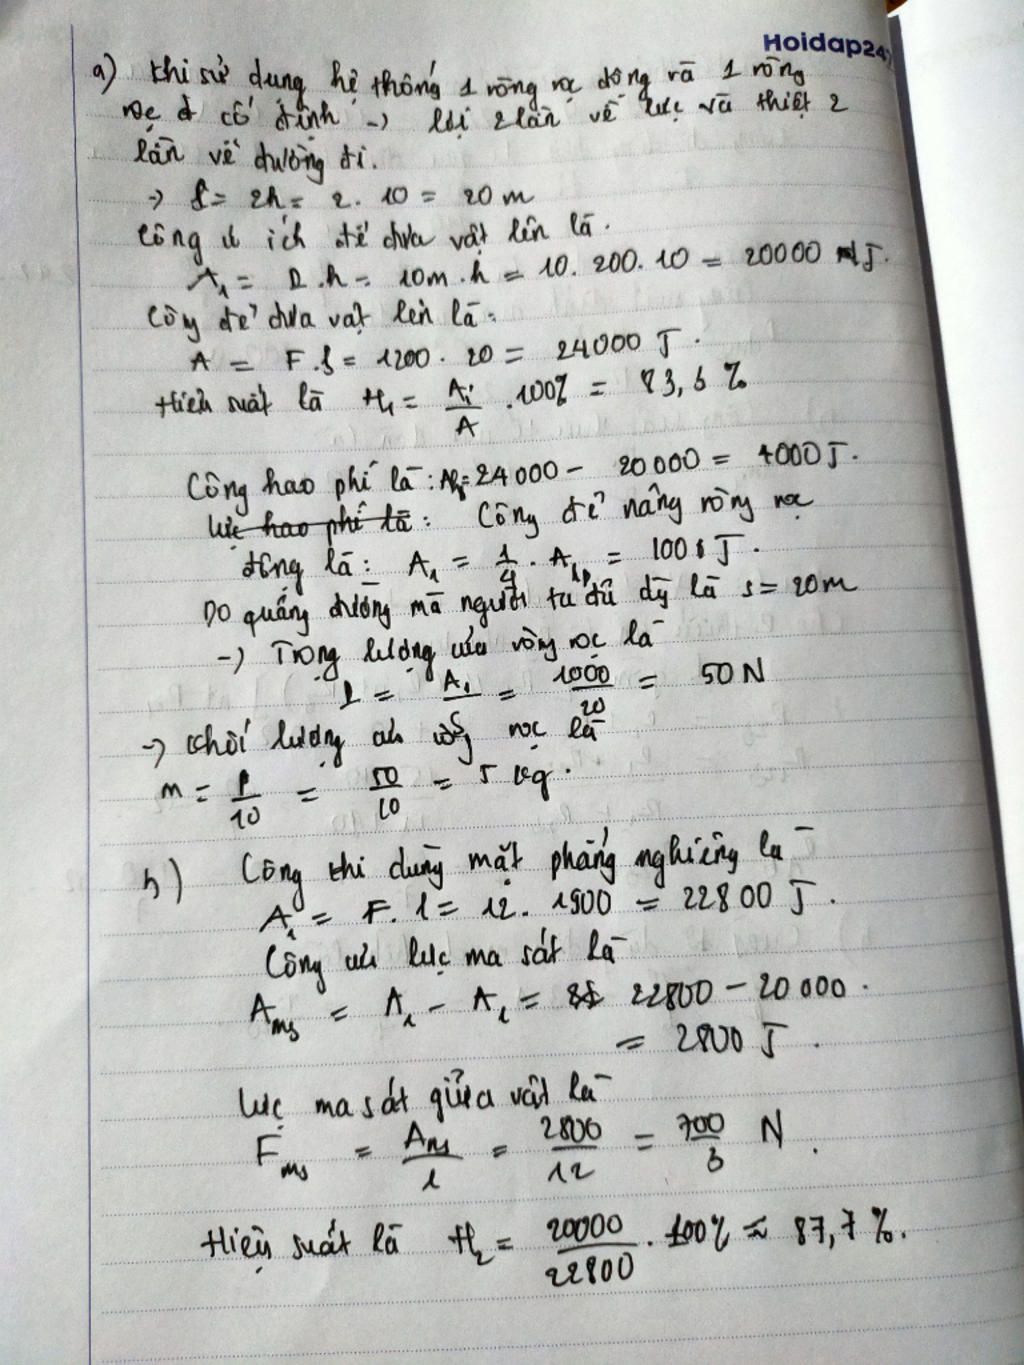 Hoidap247
a) Khi sử dụng hệ thống 1 ròng rọc động và 1 ròng
rọc cố định -> lợi 2 lần về lực và thiệt 2
lần về đường đi.
-> S = 2h = 2. 10 = 20 m
Công ích để đưa vật lên là.
Ai = P.h = 10m.h = 10. 200. 10 = 20000 J.
Công để đưa vật lên là:
A = F.S = 1200. 20 = 24000 J.
Hiệu suất là H1 = Ai/A .100% = 83,3 %
Công hao phí là: Ahp = 24000 - 20000 = 4000 J.
Lực hao phí là: Công để nâng ròng rọc
động là: A1 = 1/4 . Ahp = 1000 J.
Do quãng đường mà người ta đã là s = 20m
-> Trọng lượng của ròng rọc là
P = A1/S = 1000/20 = 50 N
-> Khối lượng của ròng rọc là
m = P/10 = 50/10 = 5 kg.
b) Công khi dùng mặt phẳng nghiêng là
A1 = F. l = 12. 1900 = 22800 J.
Công của lực ma sát là
Ams = A1 - Ai = 22800 - 20000.
= 2800 J.
Lực ma sát giữa vật là
Fms = Ams/l = 2800/12 = 700/3 N.
Hiệu suất là H2 = 20000/22800 . 100% ≈ 87,7 %.